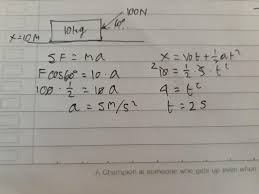 100N
10kg
60°
x=10M
ΣF = ma
x = v₀t + ½at²
Fcos60° = 10 · a
10 = ½ · 5 · t²
100 · ½ = 10 a
4 = t²
a = 5M/s²
t = 2S
A Champion is someone who gets up even when